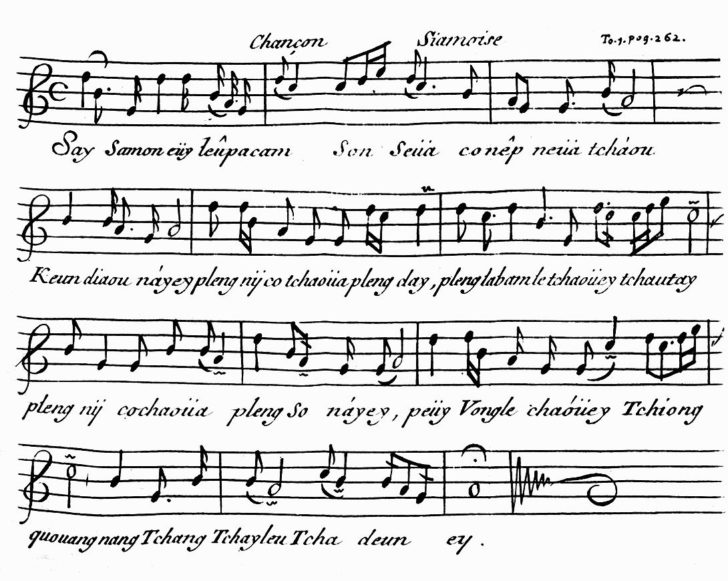 Chançon Siamoise To.1.Pog.262.
Say Samon eüy leûpacam Son Seüa conêp neüa tcháou
Keun diaou náyey pleng nÿ co tchaoüa pleng day, pleng labam le tchaoüey tchautay
pleng nÿ cochaoüa pleng So náyey, peüy Vongle chaóüey Tchiong
quouang nang Tchang Tchayleu Tcha deun ey.